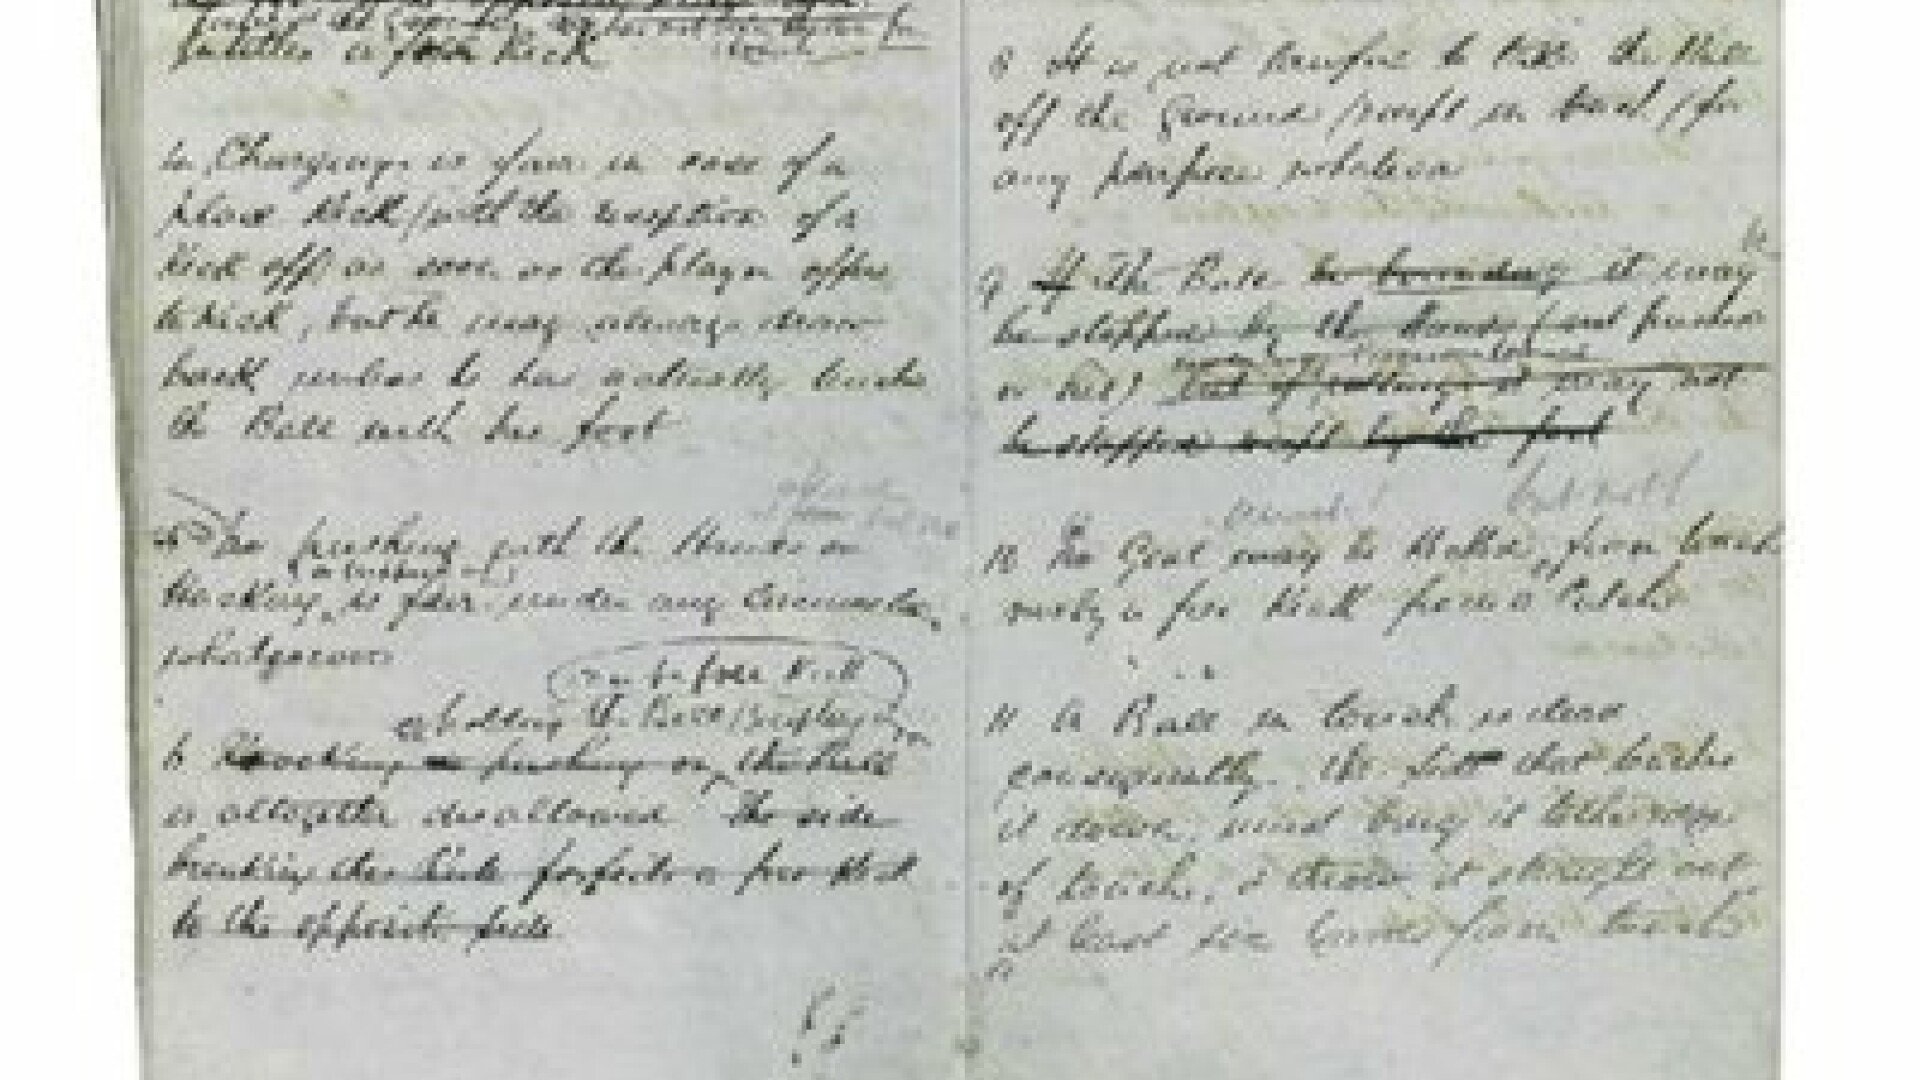 entitles a free Kick
4 Charging is fair in case of a
place Kick (with the exception of a
Kick off) as soon as the player offers
to kick, but he may always draw
back unless he has actually touched
the Ball with his foot
5 No pushing with the Hands or
Hacking, is fair under any circumstances
whatsoever
or a free Kick
holding the
6 Knocking or pushing on the ball
is altogether disallowed The side
breaking this Rule forfeits a free Kick
to the opposite side
8 It is not lawful to take the Ball
off the Ground (except in touch) for
any purpose whatever
9 If The Ball be bouncing it may
be stopped by the Hand (not pushed
or hit) but if rolling it may not
be stopped except by the foot
10 No Goal may be Kicked from touch
nor by a free Kick from a Catch
11 A Ball in touch is dead
consequently the side that touches
it down, must bring it to the edge
of touch, & throw it straight out
at least six yards from touch